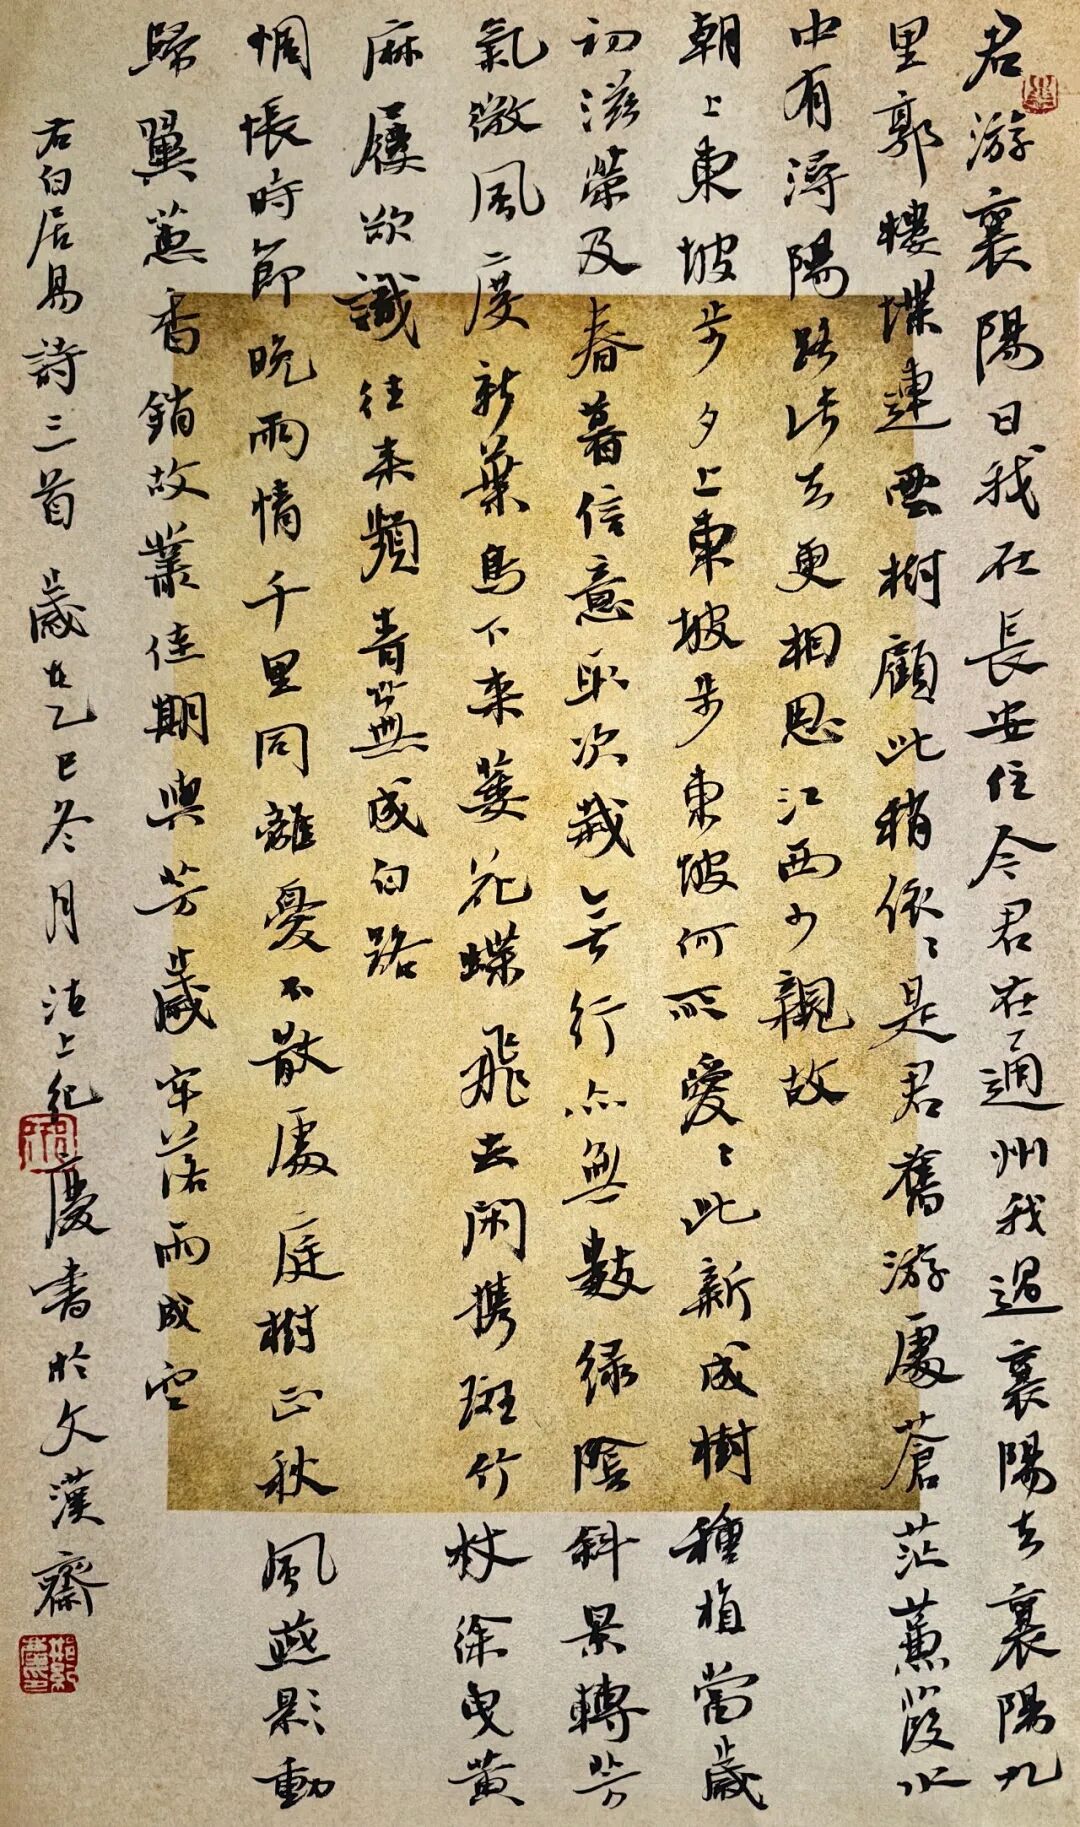 君游襄陽日我在長安住今君在通州我過襄陽去襄陽九
里郭樓堞連雲樹顧此稍依〻是君舊游處蒼茫蒹葭水
中有潯陽路此去更相思江西少親故
朝上東坡步夕上東坡步東坡何所愛〻此新成樹種植當歲
初滋榮及春暮信意取次栽無行亦無數绿陰斜景轉芳
氣微風度新葉鳥下來萎花蝶飛去閑攜斑竹杖徐曳黄
麻屨欲識往来頻青蕪成白路
惆悵時節晚兩情千里同離憂不散處庭樹正秋風燕影動
歸翼蕙香銷故叢佳期與芳歲牢落兩成空
右白居易詩三首歲在乙巳冬月沽上紀慶書於文漢齋